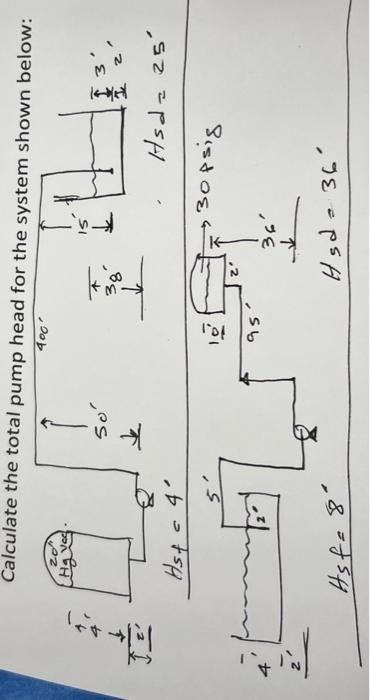 Calculate the total pump head for the system shown below:
20"
Hg vac.
4'
2'
50'
400'
38'
15'
3'
2'
Hsf = 4'
Hsd = 25'
4'
2'
2'
5'
95'
10'
2'
30 psig
36'
Hsf = 8'
Hsd = 36'